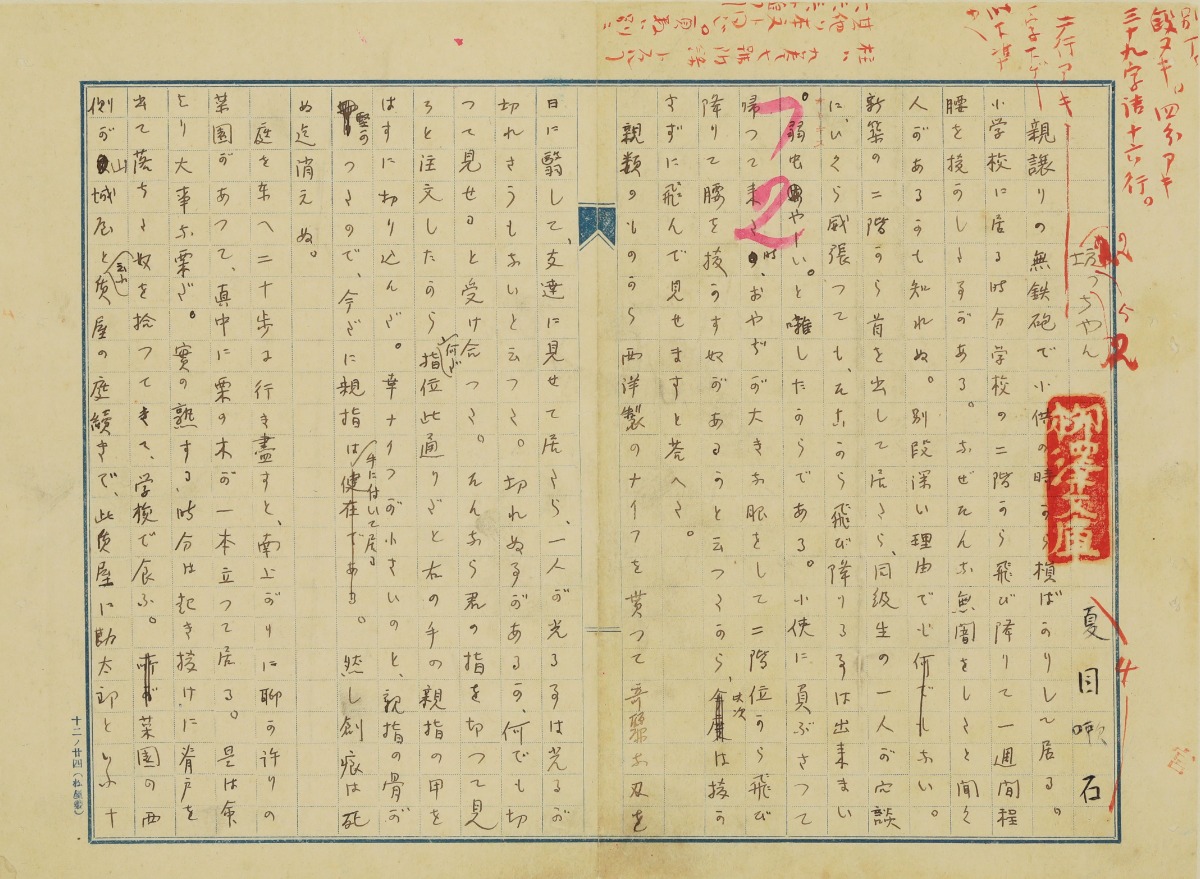 別丁
三十九字詰十六行。
二行アキ
坊っちやん
夏目漱石
柳澤文庫
親譲りの無鉄砲で小供の時から損ばかりして居る。
小学校に居る時分学校の二階から飛び降りて一週間程
腰を抜かした事がある。なぜそんな無闇をしたと聞く
人があるかも知れぬ。別段深い理由でもない。
新築の二階から首を出して居たら、同級生の一人が冗談
に、いくら威張つても、そこから飛び降りる事は出来まい
。弱虫やーい。と囃したからである。小使に負ぶさつて
帰つて来た時、おやぢが大きな眼をして二階位から飛び
降りて腰を抜かす奴があるかと云つたから、此次は抜か
さずに飛んで見せますと答へた。
親類のものから西洋製のナイフを貰つて奇麗な刃を
日に翳して、友達に見せて居たら、一人が光る事は光るが
切れさうもないと云つた。切れぬ事があるか、何でも切
つて見せると受け合つた。そんなら君の指を切つて見
ろと注文したから何だ指位此通りだと右の手の親指の甲を
はすに切り込んだ。幸ナイフが小さいのと、親指の骨が
堅かつたので、今だに親指は手に付いて居る。然し創痕は死
ぬ迄消えぬ。
庭を東へ二十歩に行き盡すと、南上がりに聊か許りの
菜園があつて、真中に栗の木が一本立つて居る。是は命
より大事な栗だ。實の熟する時分は起き抜けに脊戸を
出て落ちた奴を拾つてきて、学校で食ふ。菜園の西
側が山城屋と云ふ質屋の庭續きで、此質屋に勘太郎といふ十
72
2
5
2
4
十二ノ廿四